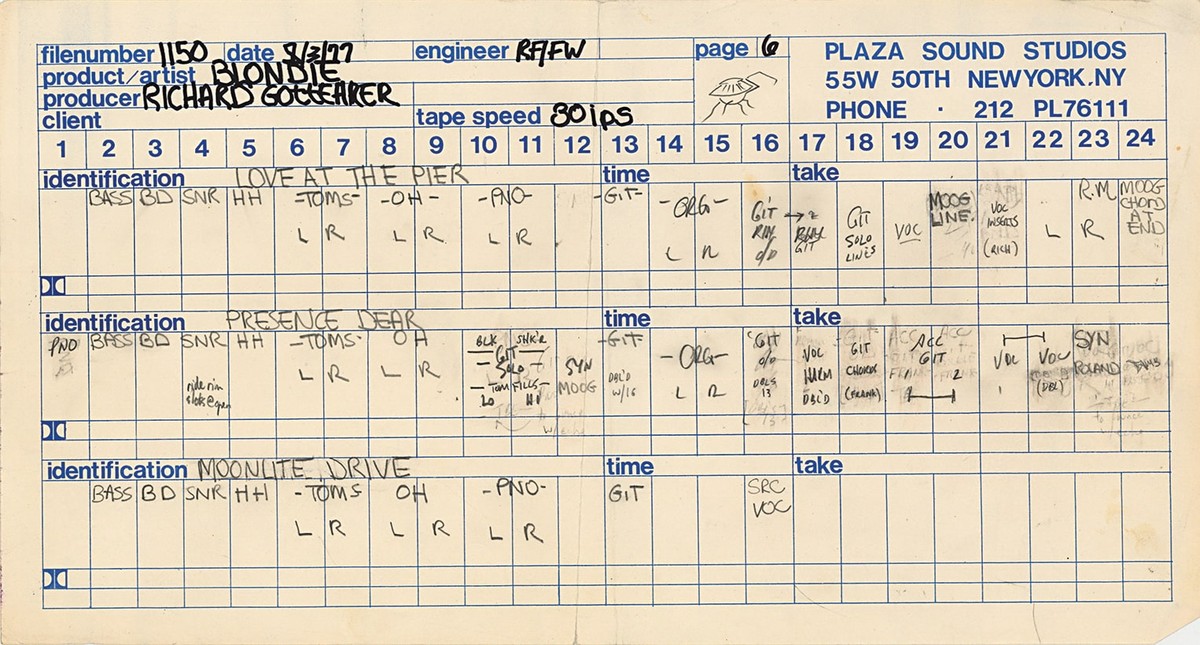 filenumber 1150 date 8/3/77 engineer RF/FW page 6
product/artist BLONDIE
producer RICHARD GOTTEHRER
client tape speed 30ips
PLAZA SOUND STUDIOS
55W 50TH NEWYORK.NY
PHONE · 212 PL76111
1 2 3 4 5 6 7 8 9 10 11 12 13 14 15 16 17 18 19 20 21 22 23 24
identification LOVE AT THE PIER time take
BASS BD SNR HH -TOMS- -OH- -PNO- -GIT- -ORG- GIT → 2 GIT VOC MOOG VOC R.M MOOG
RIM SOLO LINE. INSERTS CHORD
O/D GIT LINES (RICH) AT
L R L R L R L R L R END
identification PRESENCE DEAR time take
PNO BASS BD SNR HH -TOMS- OH BLK SHK'R -GIT- -ORG- GIT VOC GIT ACC VOC VOC SYN
-GIT- SYN O/D HARM CHORDS GIT (DBL) ROLAND
-SOLO- MOOG DBL'D DBLS DBL'D (FRANK) 1 2
ride rim -TOM FILLS- W/16 13
L R L R LO HI L R
identification MOONLITE DRIVE time take
BASS BD SNR HH -TOMS OH -PNO- GIT SRC
VOC
L R L R L R